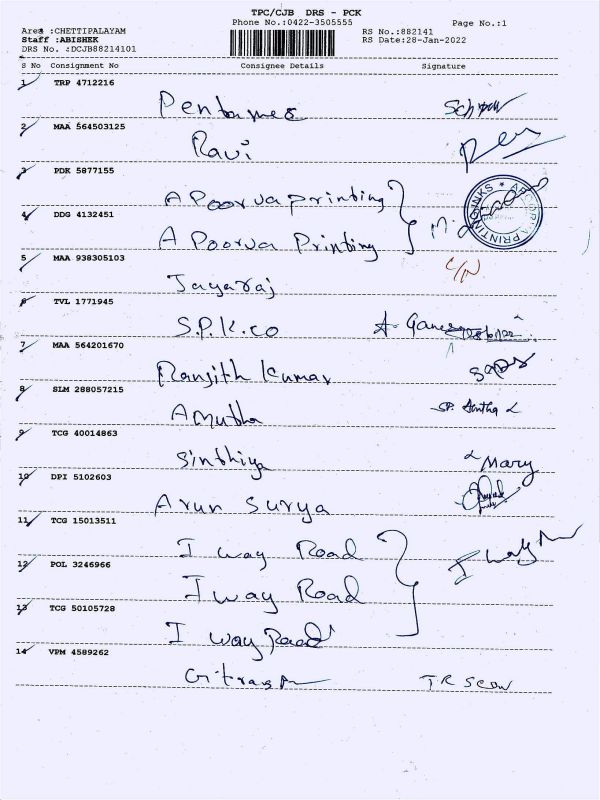 TPC/CJB DRS - PCK
Phone No.:0422-3505555
Page No.:1
Area :CHETTIPALAYAM
Staff :ABISHEK
DRS No. :DCJB88214101
RS No.:882141
RS Date:28-Jan-2022
S No Consignment No Consignee Details Signature
1 TRP 4712216
Pentames
2 MAA 564503125
Ravi
3 PDK 5877155
A Poorva printing
4 DDG 4132451
A Poorva Printing
5 MAA 938305103
C/N
Jayaraj
6 TVL 1771945
S.P.K.co
7 MAA 564201670
Ranjith Kumar
8 SLM 288057215
Amutha
9 TCG 40014863
Sinthiya Mary
10 DPI 5102603
Arun Surya
11 TCG 15013511
I way Road
12 POL 3246966
I way Road
13 TCG 50105728
I way Road
14 VPM 4589262